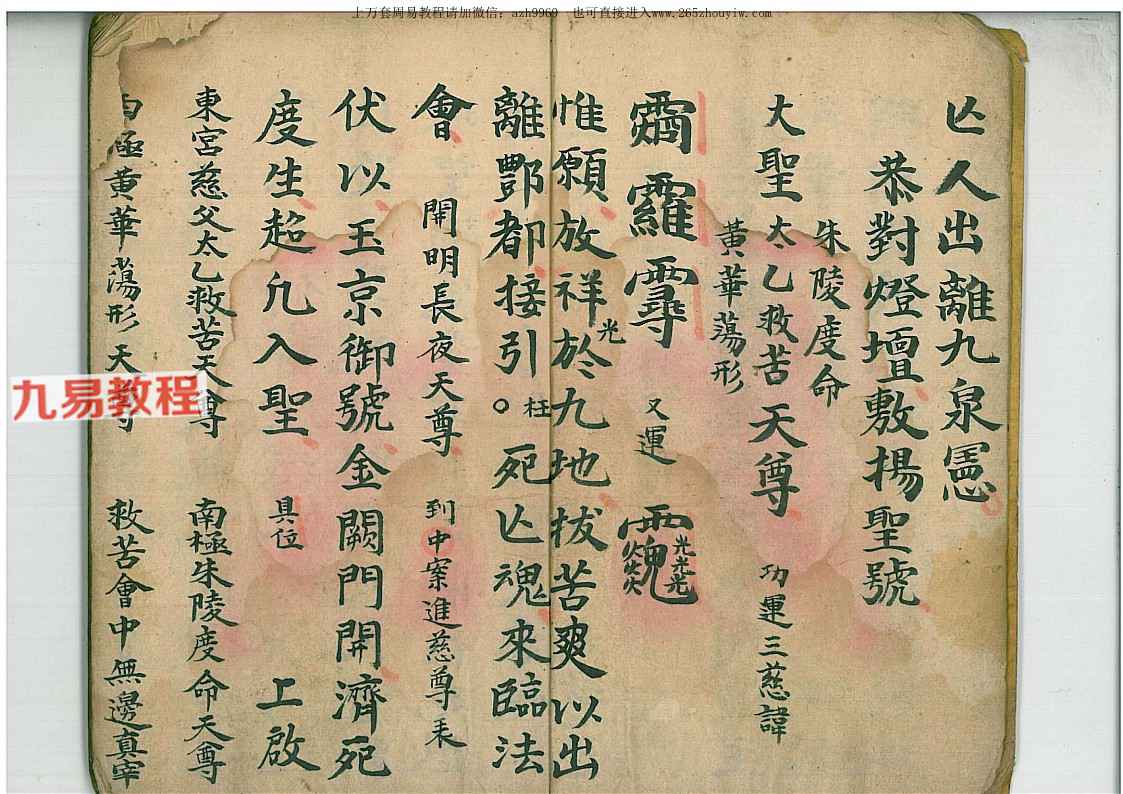 上万套周易教程请加微信：azh9969 也可直接进入www.265zhouyiw.com
亾人出離九泉
恭對燈壇敷揚聖號
朱陵度命
大聖太乙救苦天尊 功運三慈諱
黃華蕩形
又運
惟願放祥光於九地拔苦爽以出
離酆都接引。枉死亾魂來臨法
會 開明長夜天尊 到中案進慈尊表
伏以玉京御號金闕門開濟死
度生超凢入聖 具位 上啟
東宮慈父太乙救苦天尊 南極朱陵度命天尊
極黃華蕩形天尊 救苦會中無邊真宰
九易教程